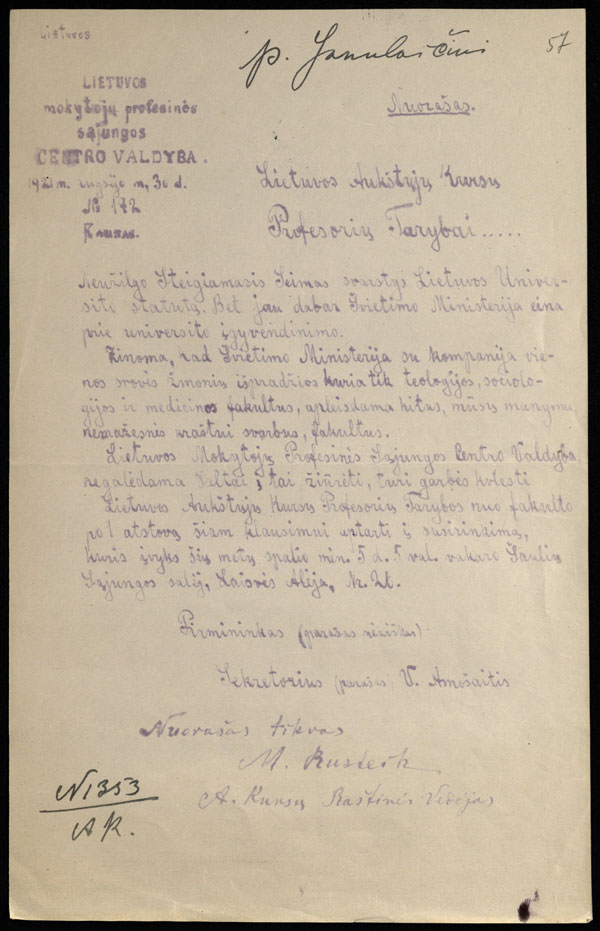 Lietuvos
p. Janulaičiui
57
Nuorašas.
LIETUVOS
mokytojų profesinės
sąjungos
CENTRO VALDYBA.
1921 m. rugsėjo m, 30 d.
№ 172
Kaunas.
Lietuvos Aukštųjų Kursų
Profesorių Tarybai.....
Neužilgo Steigiamasis Seimas svarstys Lietuvos Univer-
sito statutą. Bet jau dabar Švietimo Ministerija eina
prie universito įgyvendinimo.
Žinoma, kad Švietimo Ministerija su kompanija vie-
nos srovės žmonių išpradžios kuria tik teologijos, sociolo-
gijos ir medicinos fakultus, apleisdama kitus, mūsų manymu,
nemažesnės kraštui svarbus, fakultus.
Lietuvos Mokytojų Profesinės Sąjungos Centro Valdyba,
negalėdama šaltai į tai žiūrėti, turi garbės kviesti
Lietuvos Aukštųjų Kursų Profesorių Tarybos nuo fakulto
po 1 atstovą šiam klausimui aptarti į susirinkimą,
kuris įvyks šių metų spalio mėn. 5 d. 5 val. vakaro Šaulių
Sąjungos salėj, Laisvės Alėja, Nr.
Pirmininkas (parašas neaiškus)
Sekretorius (parašas) V. Amošaitis
Nuorašas tikras
M.
A. Kursų Raštinės Vedėjas
N1353
AK.